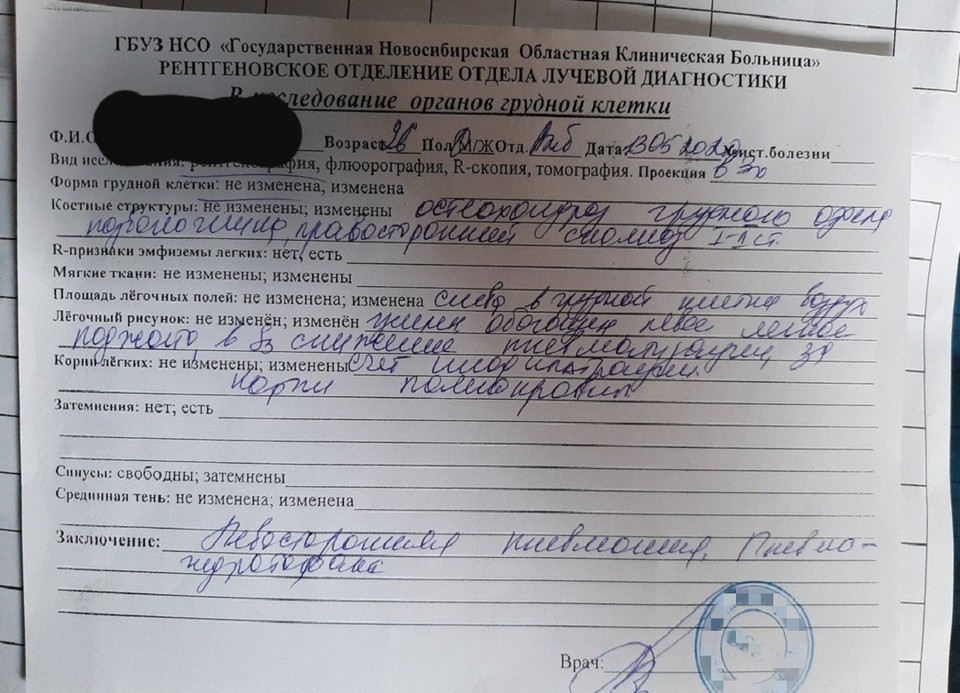 ГБУЗ НСО «Государственная Новосибирская Областная Клиническая Больница»
РЕНТГЕНОВСКОЕ ОТДЕЛЕНИЕ ОТДЕЛА ЛУЧЕВОЙ ДИАГНОСТИКИ
органов грудной клетки
Возраст 26 Пол М/Ж Отд. Дата: ист.болезни
Вид рентгенография, флюорография, R-скопия, томография. Проекция в 3х
Форма грудной клетки: не изменена, изменена
Костные структуры: не изменены; изменены остеохондроз грудного отдела
правосторонний сколиоз I-II ст.
R-признаки эмфиземы легких: нет, есть
Мягкие ткани: не изменены; изменены
Площадь лёгочных полей: не изменена; изменена слева в грудной клетке воздух
Лёгочный рисунок: не изменён; изменён усилен обогащен левое легкое
поджато в снижение за
Корни лёгких: не изменены; изменены счёт инфильтрации.
корни полнокровны
Затемнения: нет; есть
Синусы: свободны; затемнены
Срединная тень: не изменена; изменена
Заключение: Левосторонняя пневмония. Пневмо-
гидроторакс
Врач: